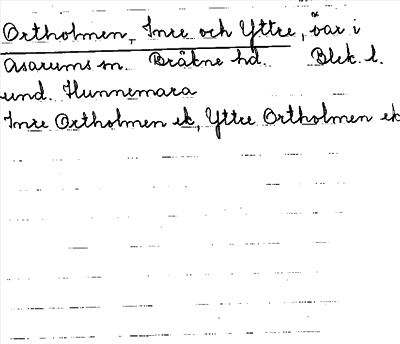 Ortholmen, Inre och Yttre, öar i
Asarums sn. Bräkne hd. Blek. l.
und. Hunnemara
Inre Ortholmen ek, Yttre Ortholmen ek